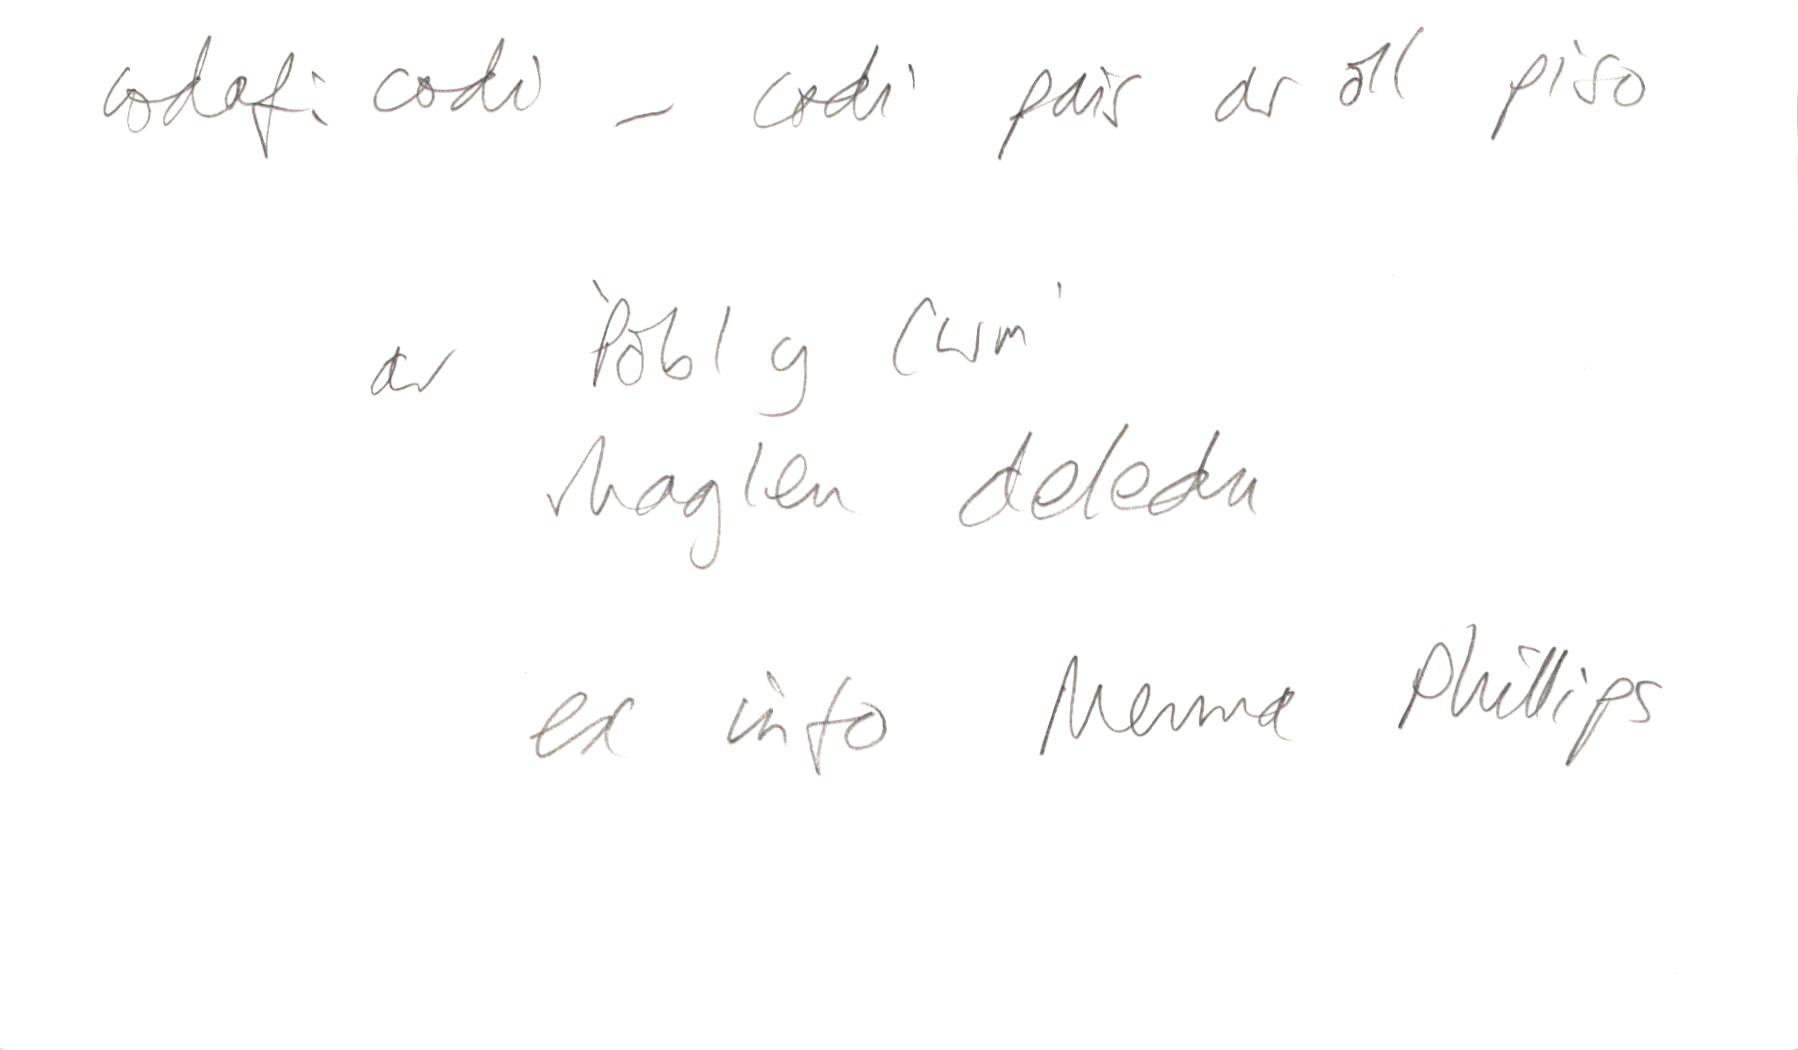 codaf: codi – codi pais ar ôl piso
ar 'Pobl y Cwm'
rhaglen deledu
ex info Menna Phillips